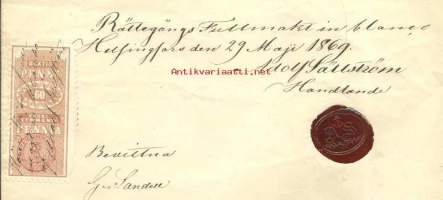 Rättegångs Fullmakt in blanco
Helsingfors den 29 Maji 1869.
Adolf Sällström
Handlande
Antikvariaatti.net
Bevittna
Sandell